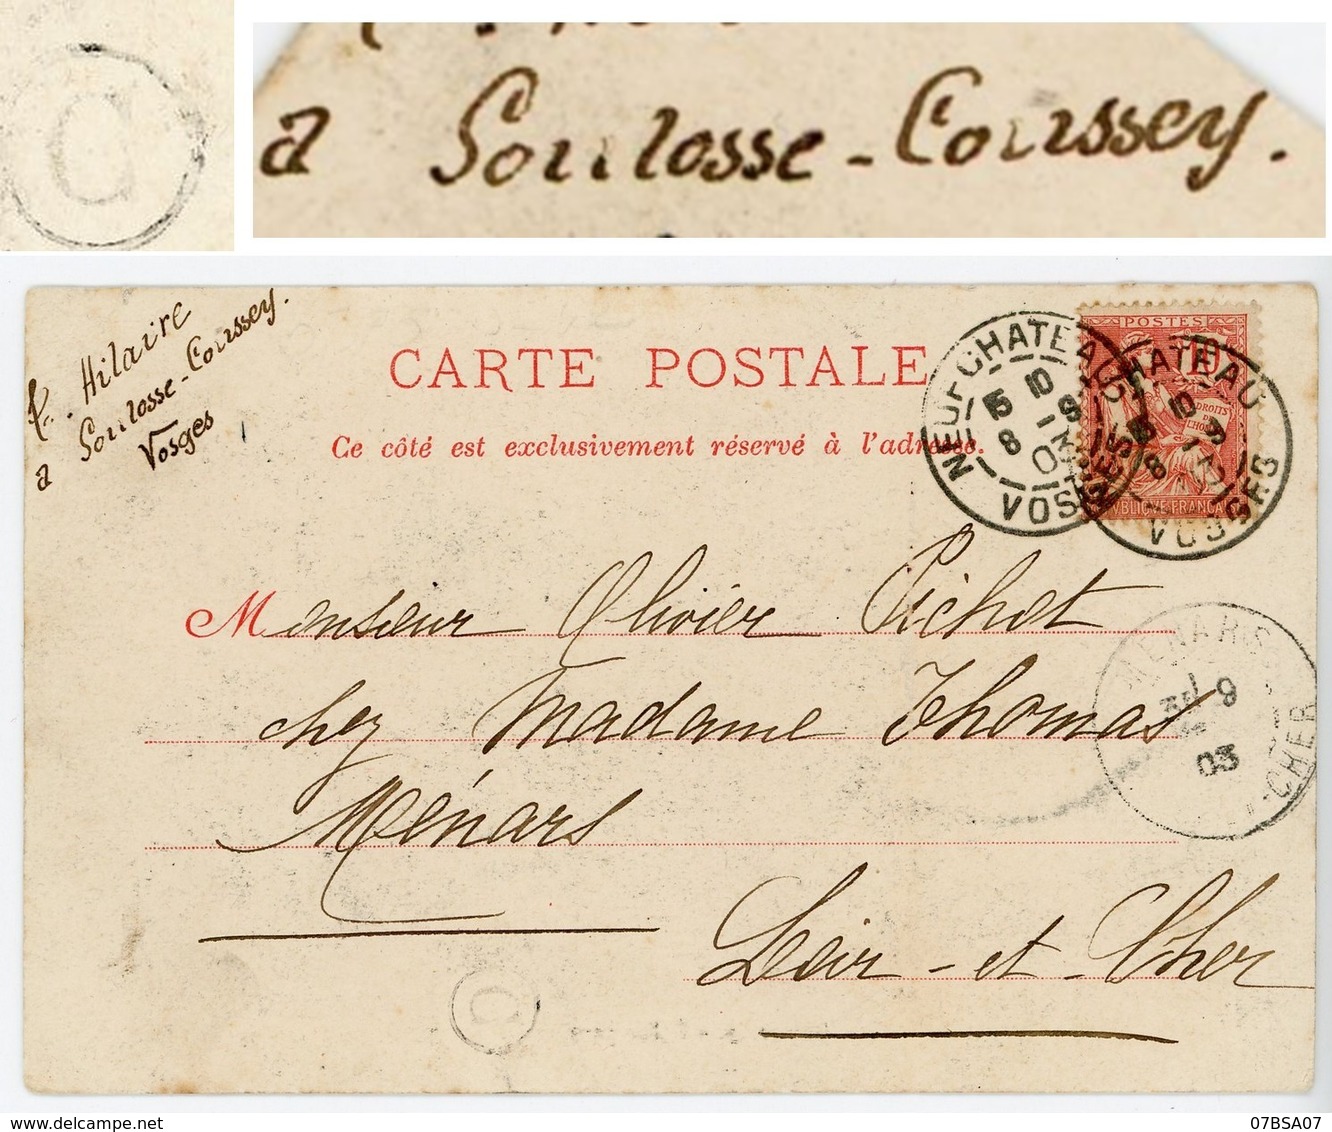 C
à Soulosse-Coussey.
Hilaire
à Soulosse-Coussey.
Vosges
CARTE POSTALE
Ce côté est exclusivement réservé à l'adresse.
NEUFCHATEAU
15 10
8 9
03
VOSGES
POSTES
10
DROITS
DE
L'HOMME
CHATEAU
10
8
VOSGES
Monsieur Olivier Pichet
chez Madame Thomas
Ménars
Loir-et-Cher
MENARS
9
03
-CHER
C
delcampe.net
07BSA07